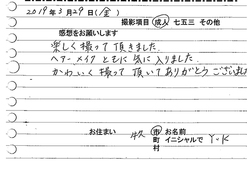 2019年3月29日(金)
撮影項目 成人 七五三 その他
感想をお願いします
楽しく撮って頂きました。
ヘアーメイクともに気に入りました。
かわいく撮って頂いてありがとうございました
お住まい 牛久 市 町 村 お名前 イニシャルで Y-K